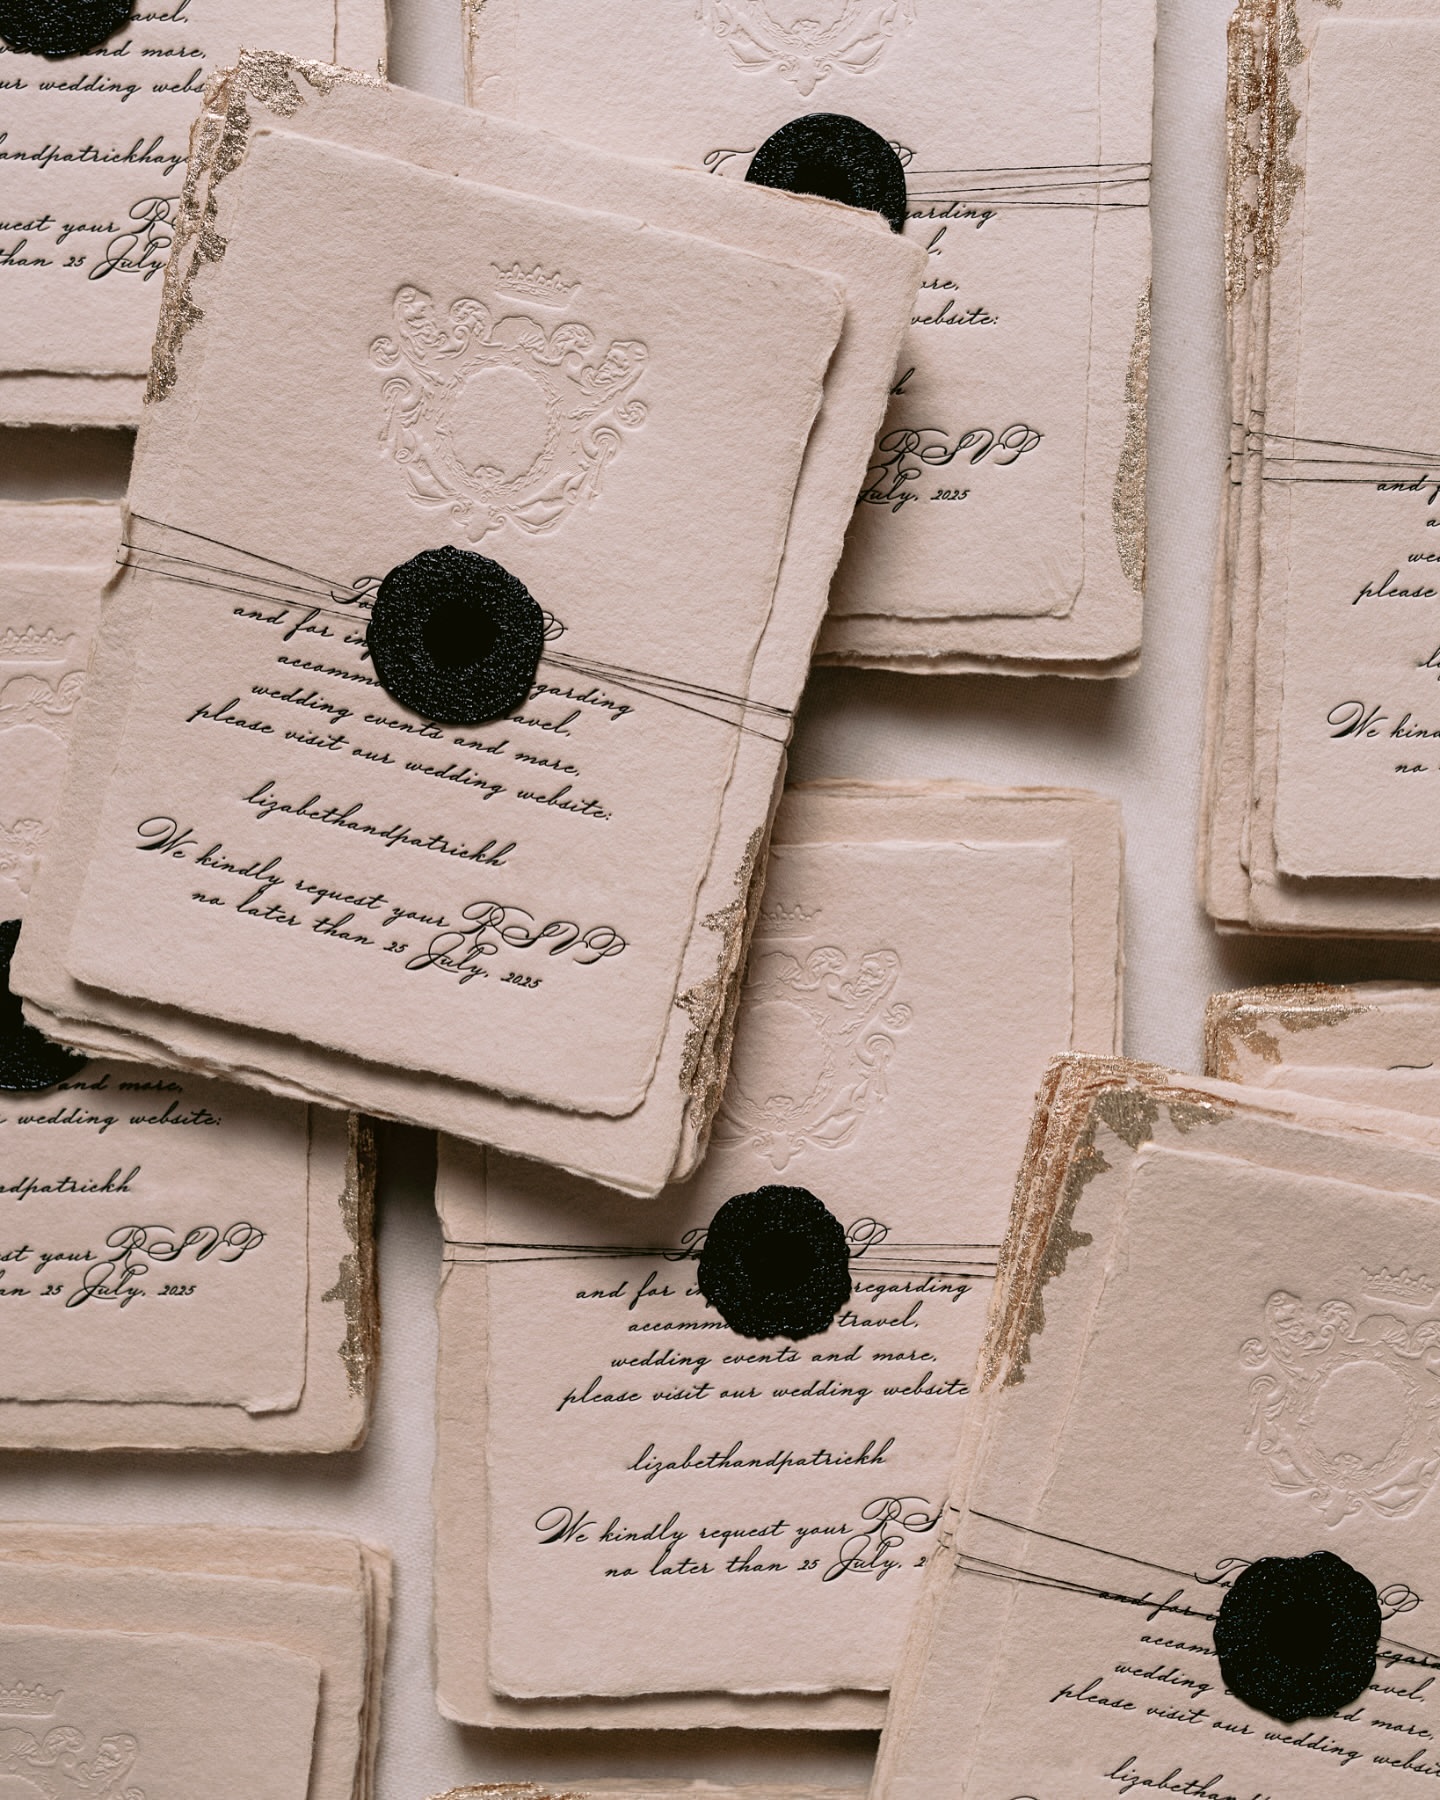 avel,
and more,
ur wedding webs
andpatrickhay
uest your R
than 25 July
T P
arding
l,
re,
website:
h
RSVP
July, 2025
To P
and for in
accomm garding
wedding events avel,
please visit our and more,
wedding website:
lizabethandpatrickh
We kindly request your RSVP
no later than 25 July, 2025
and f
a
we
please
li
We kind
no
and more,
wedding website:
ndpatrickh
st your RSVP
an 25 July, 2025
To P
and for in regarding
accomm travel,
wedding events and more,
please visit our wedding website
lizabethandpatrickh
We kindly request your RS
no later than 25 July, 2
To P
and for i
accomm egard
wedding e avel,
please visit our nd more,
wedding websi
lizabethan